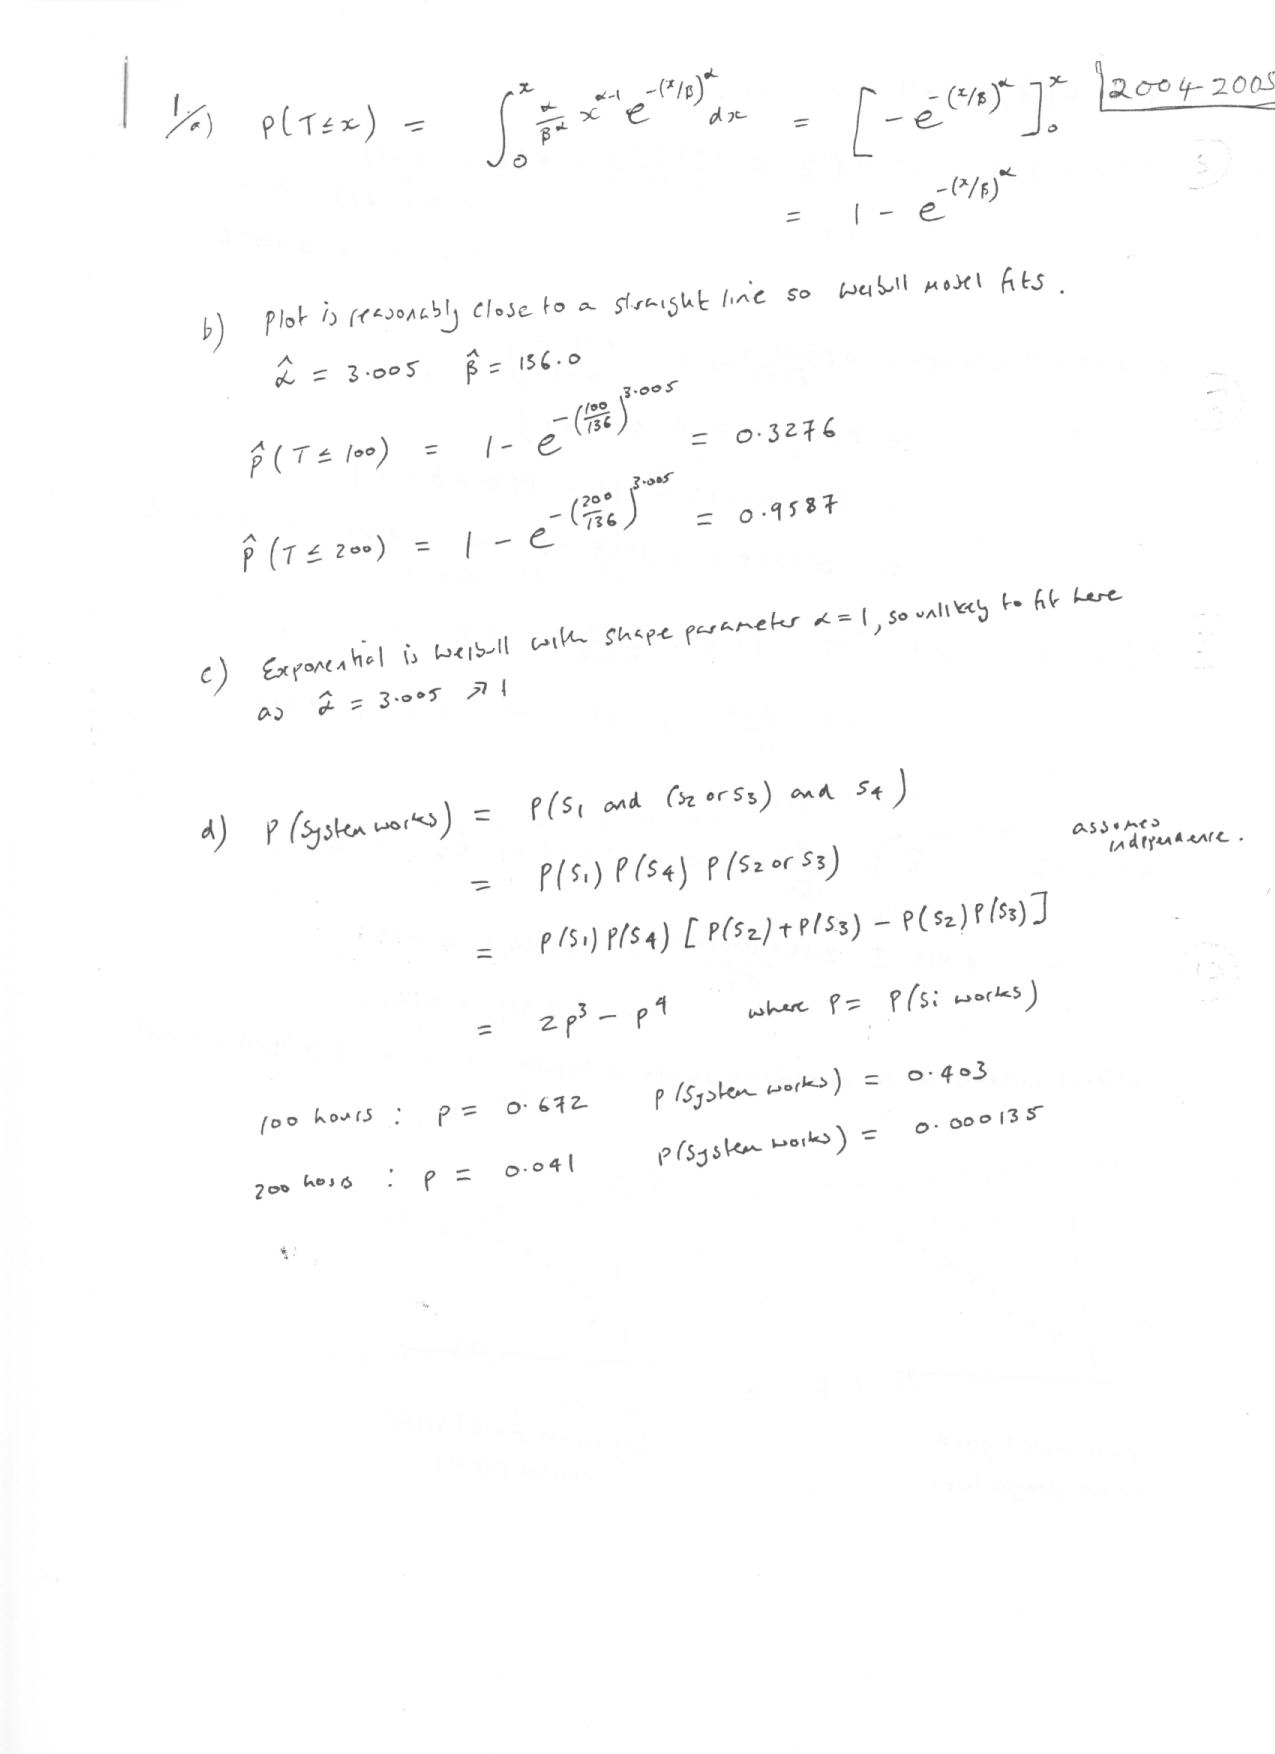 2004-2005
1/a) P(T≤x) = ∫₀ˣ α/β^α x^(α-1) e^(-(x/β)^α) dx = [-e^(-(x/β)^α)]₀ˣ
= 1 - e^(-(x/β)^α)
b) Plot is reasonably close to a straight line so Weibull model fits.
α̂ = 3.005 β̂ = 136.0
P̂(T≤100) = 1 - e^(-(100/136)^3.005) = 0.3276
P̂(T≤200) = 1 - e^(-(200/136)^3.005) = 0.9587
c) Exponential is Weibull with shape parameter α=1, so unlikely to fit here
as α̂ = 3.005 >> 1
d) P(System works) = P(S1 and (S2 or S3) and S4)
= P(S1) P(S4) P(S2 or S3) assumes independence.
= P(S1) P(S4) [P(S2)+P(S3) - P(S2)P(S3)]
= 2p³ - p⁴ where p = P(Si works)
100 hours : p = 0.672 P(System works) = 0.403
200 hours : p = 0.041 P(System works) = 0.000135